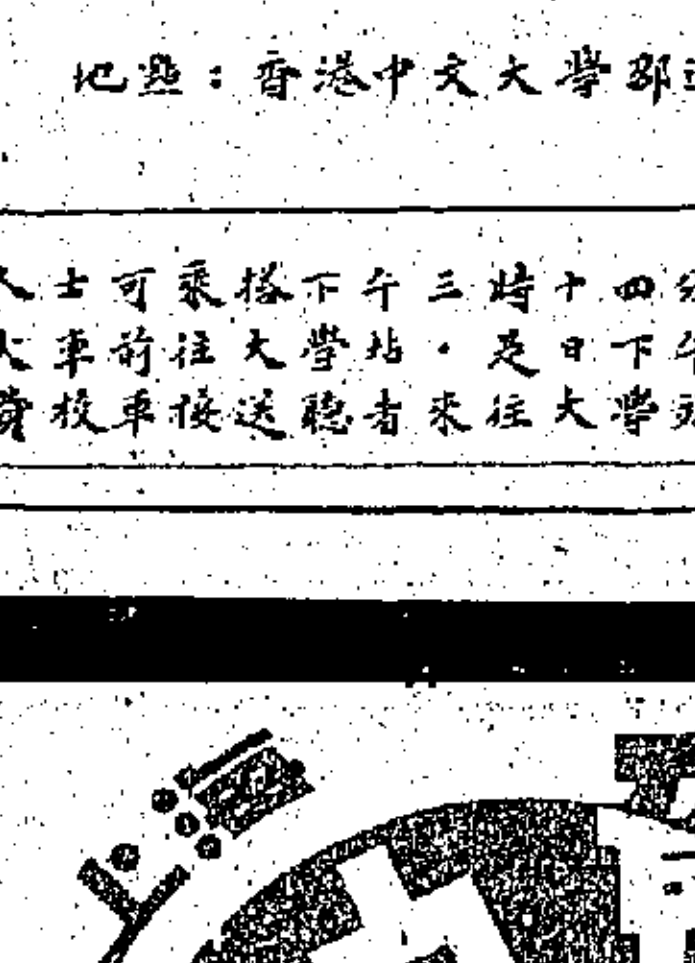 地點：香港中文大學邵
士可乘搭下午三時十四分
車前往大學站．是日下午
費校車接送聽者來往大學